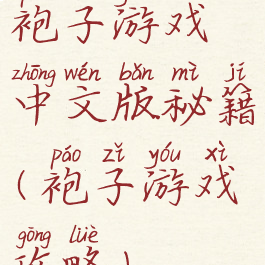 袍子游戏
zhōng wén bǎn mì jí
中文版秘籍
páo zǐ yóu xì
(袍子游戏
gōng lüè
攻略)